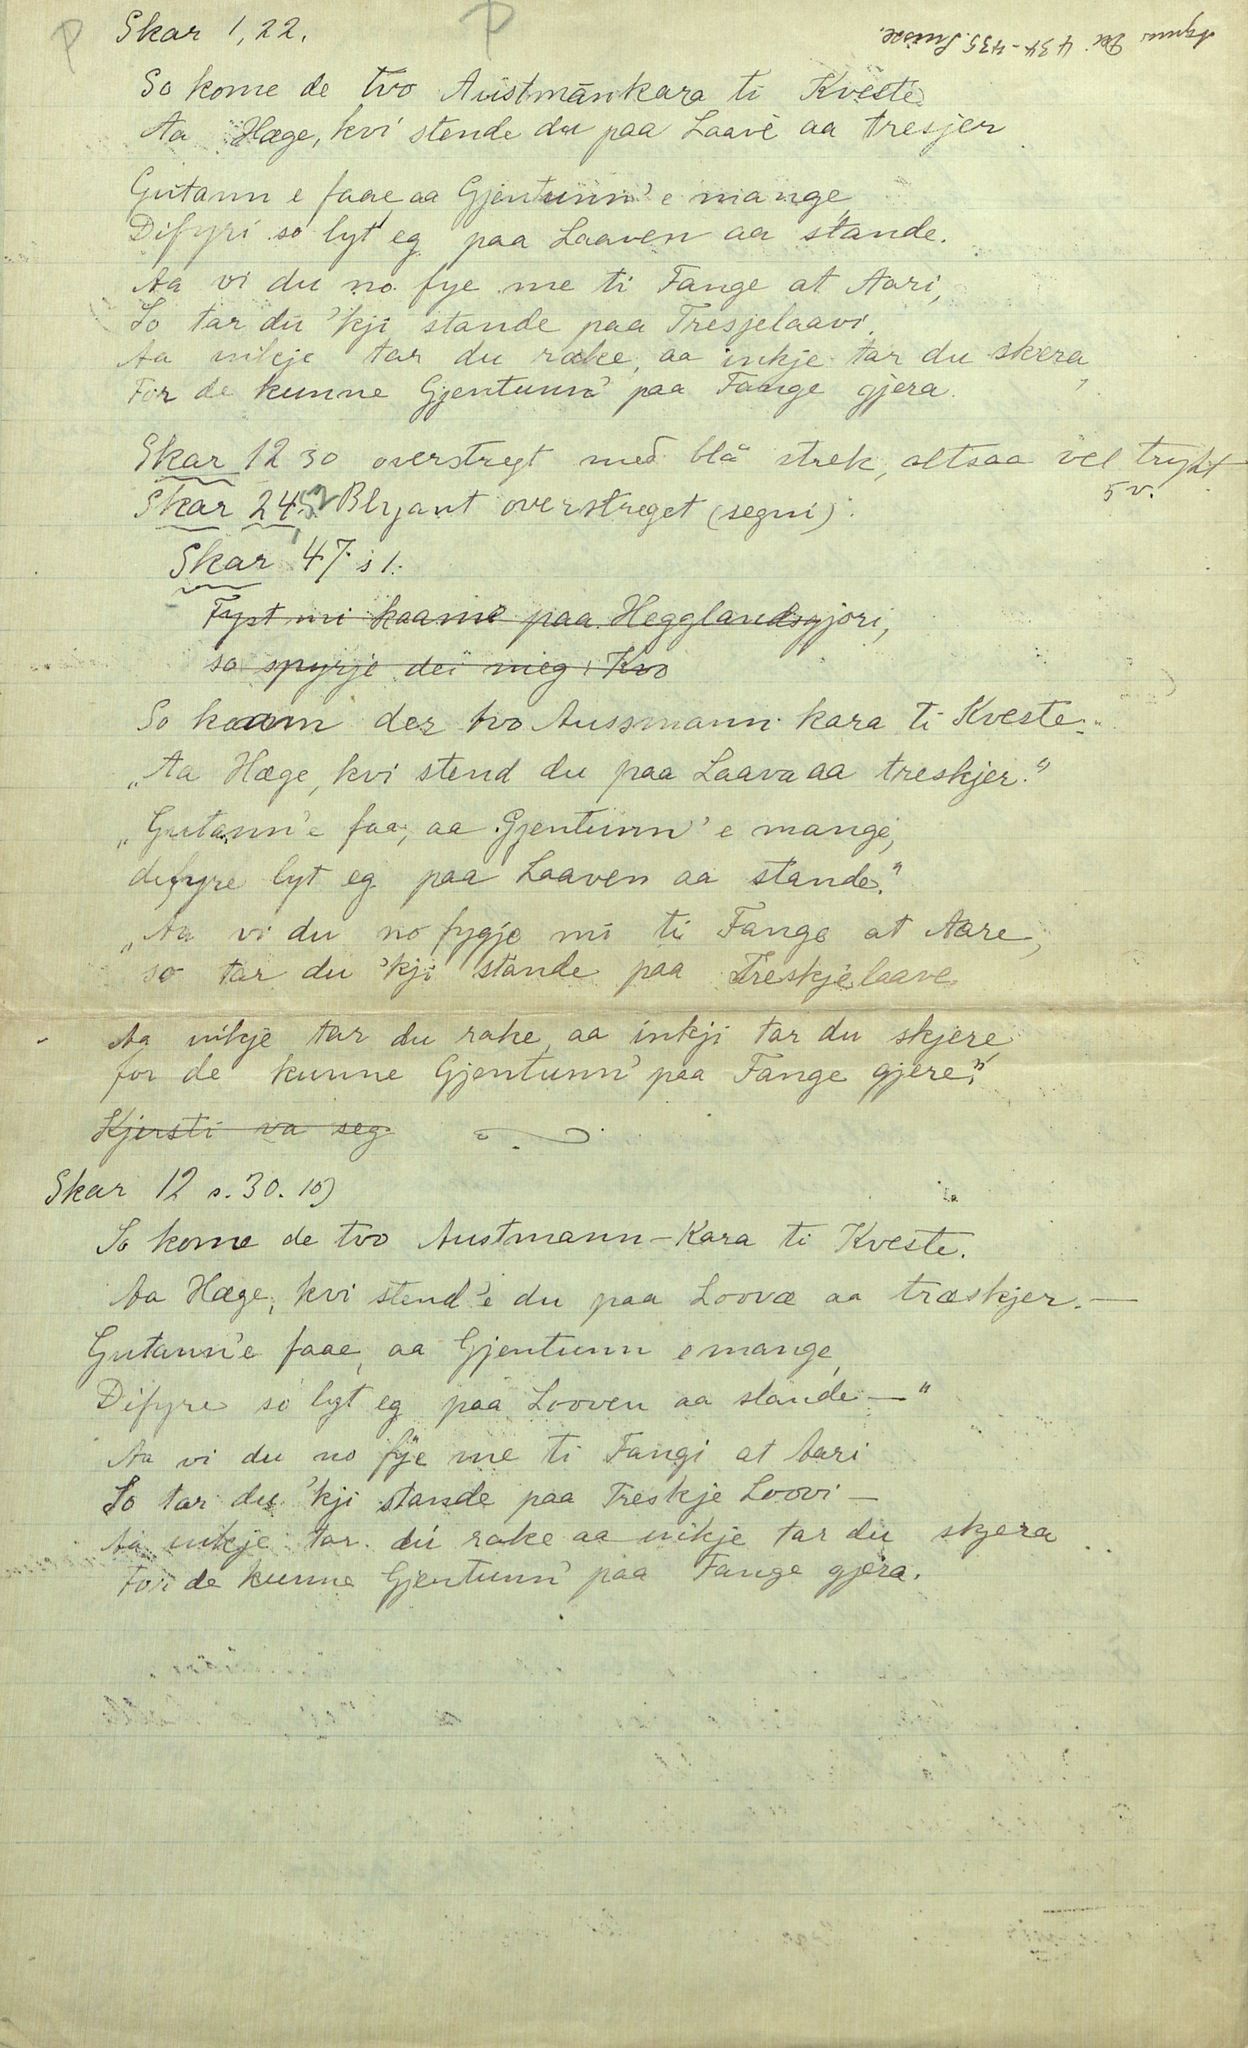 Skar 1,22.
Agnus Dei 434-435. Luisae.
So kome de tvo Austmännkara ti Kveste
Aa Hæge, kvi stende du paa Laave aa tresjer
Gutann e faae, aa Gjentunn' e mange
Difyri so lyt eg paa Laaven aa stande.
Aa vi du no fye me ti Fange at Aari,
So tar du 'kji stande paa Tresjelaavi.
Aa inkje tar du rake, aa inkje tar du skera
For de kunne Gjentunn' paa Fange gjera.
Skar 12 30 overstregt med blå strek, altsaa vel trykt
5 v.
Skar 24,52 Blyant overstreget (segni).
Skar 47 s 1.
Fyst mi kaame paa Hegglandsgjori,
so spyrje dei meg: Kvo
So kaam der tvo Aussmann-kara ti Kveste.
„Aa Hæge, kvi stend du paa Laava aa treskjer."
„Gutann'e faa, aa Gjentunn' e mange,
difyre lyt eg paa Laaven aa stande."
„Aa vi du no fygje mi ti Fange at Aare,
so tar du 'kji stande paa Treskjelaave.
Aa inkje tar du rake, aa inkji tar du skjere,
for de kunne Gjentunn' paa Fange gjere."
Kjersti va seg
Skar 12 s. 30. 10)
So kome de tvo Austmann-Kara ti Kveste.
Aa Hæge, kvi stend'e du paa Loovæ aa træskjer.—
Gutann'e faae, aa Gjentunn e mange,
Difyre so lyt eg paa Looven aa stande—"
Aa vi du no fye me ti Fangi at Aari
So tar du 'kji stande paa Treskje Loovi—
Aa inkje tar du rake aa inkje tar du skjera
For de kunne Gjentunn' paa Fange gjera.